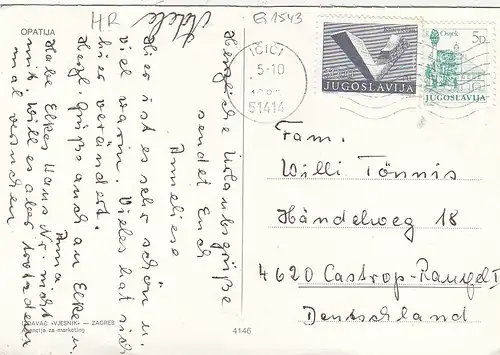 OPATIJA
HR
Adele
G 1543
IČIĆI
5-10
51414
JUGOSLAVIJA
Osijek
5D
JUGOSLAVIJA
Herzliche Urlaubsgrüße
sendet Euch
Anneliese
Hier ist es sehr schön u.
viel warm. Vieles hat sich
hier verändert.
Herzl. Grüße auch an Elke u.
Anna
Habe Elkes Haus Nr. nicht
mit. Will es aber trotzdem
mal versuchen
Fam.
Willi Tönnis
Händelweg 18
4620 Castrop-Rauxel I
Deutschland
IZDAVAČ »VJESNIK« — ZAGREB
Agencija za marketing
4146